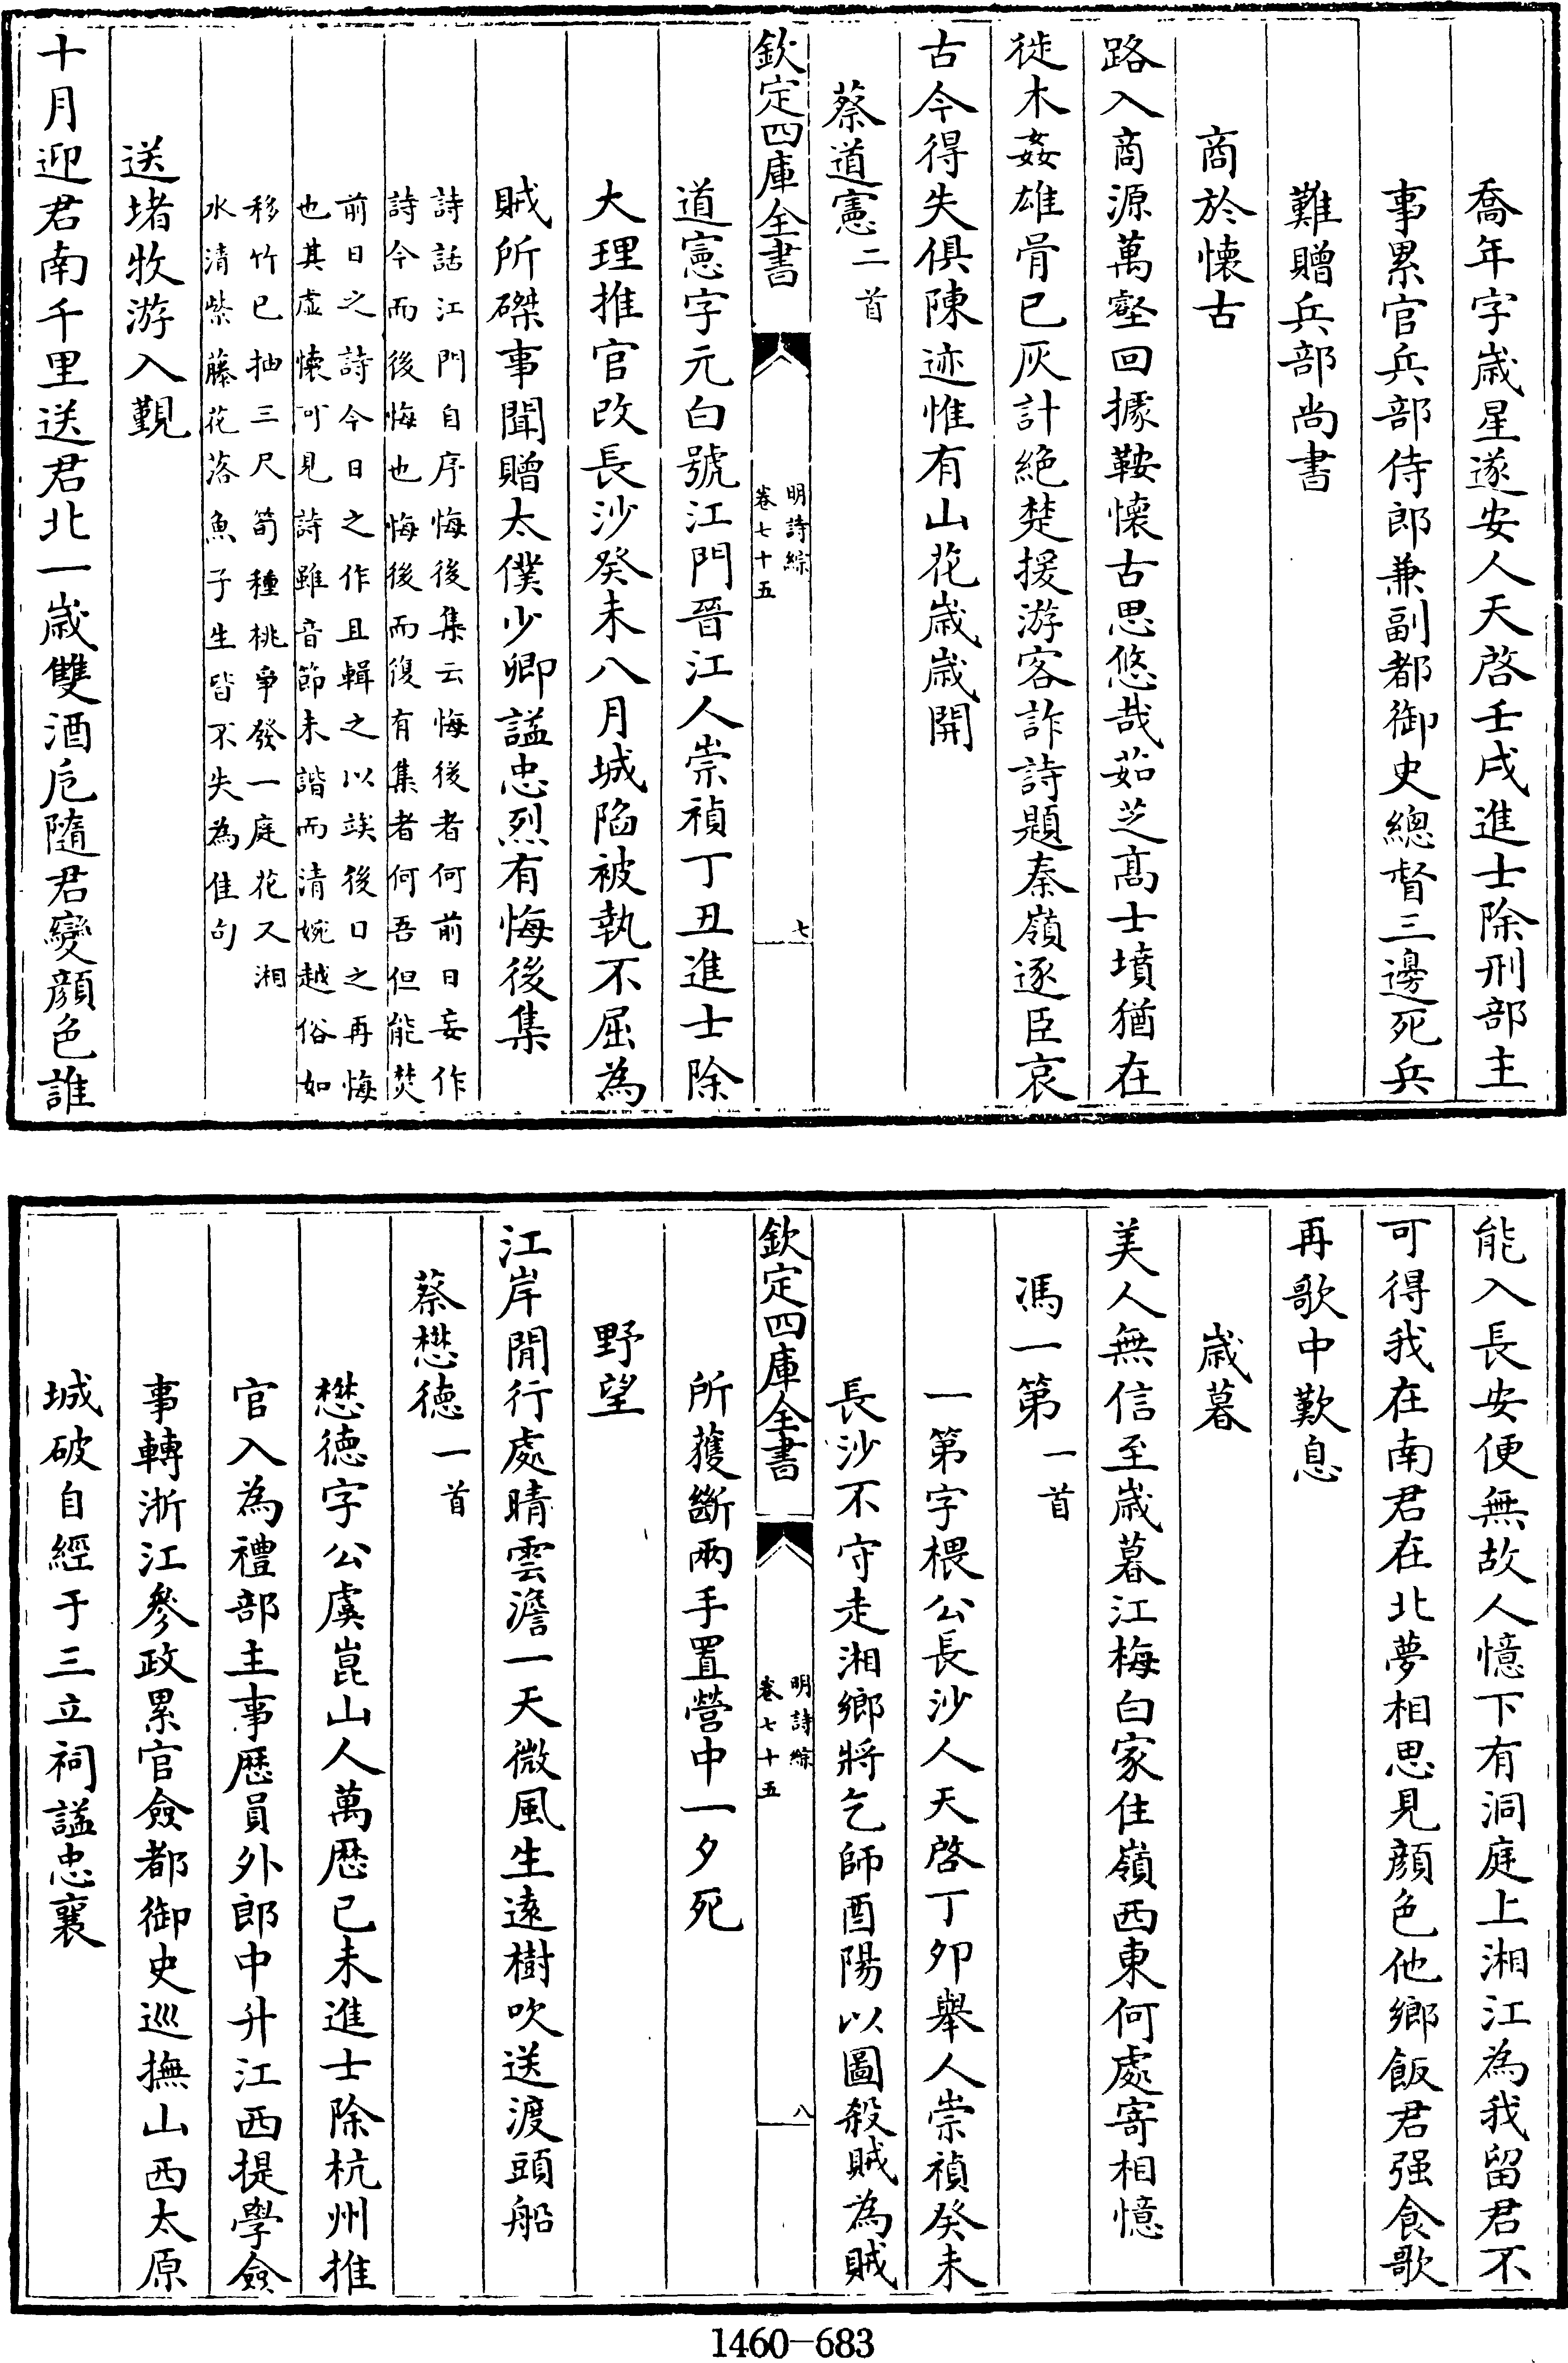 喬年字歲星遂安人天啓壬戌進士除刑部主
事累官兵部侍郎兼副都御史總督三邊死兵
難贈兵部尚書
商於懷古
路入商源萬壑回據鞍懷古思悠哉茹芝髙士墳猶在
徙木姦雄骨已灰計絶楚援游客詐詩題秦嶺逐臣哀
古今得失俱陳迹惟有山花歲歲開
蔡道憲二首
欽定四庫全書
明詩綜
卷七十五
七
道憲字元白號江門晉江人崇禎丁丑進士除
大理推官改長沙癸未八月城陷被執不屈為
賊所磔事聞贈太僕少卿謚忠烈有悔後集
詩話江門自序悔後集云悔後者何前日妄作
詩今而後悔也悔後而復有集者何吾但能焚
前日之詩今日之作且輯之以竢後日之再悔
也其虛懷可見詩雖音節未諧而清婉越俗如
移竹已抽三尺筍種桃爭發一庭花又湘
水清紫藤花落魚子生皆不失為佳句
送堵牧游入覲
十月迎君南千里送君北一歲雙酒卮隨君變顔色誰
能入長安便無故人憶下有洞庭上湘江為我留君不
可得我在南君在北夢相思見顔色他鄉飯君强食歌
再歌中歎息
歲暮
美人無信至歲暮江梅白家住嶺西東何處寄相憶
馮一第一首
一第字椳公長沙人天啓丁夘舉人崇禎癸未
長沙不守走湘鄉將乞師酉陽以圖殺賊為賊
欽定四庫全書
明詩綜
卷七十五
八
所獲斷兩手置營中一夕死
野望
江岸閒行處晴雲澹一天微風生遠樹吹送渡頭船
蔡懋德一首
懋德字公虞崑山人萬厯已未進士除杭州推
官入為禮部主事厯員外郎中升江西提學僉
事轉浙江參政累官僉都御史巡撫山西太原
城破自經于三立祠謚忠襄
1460-683